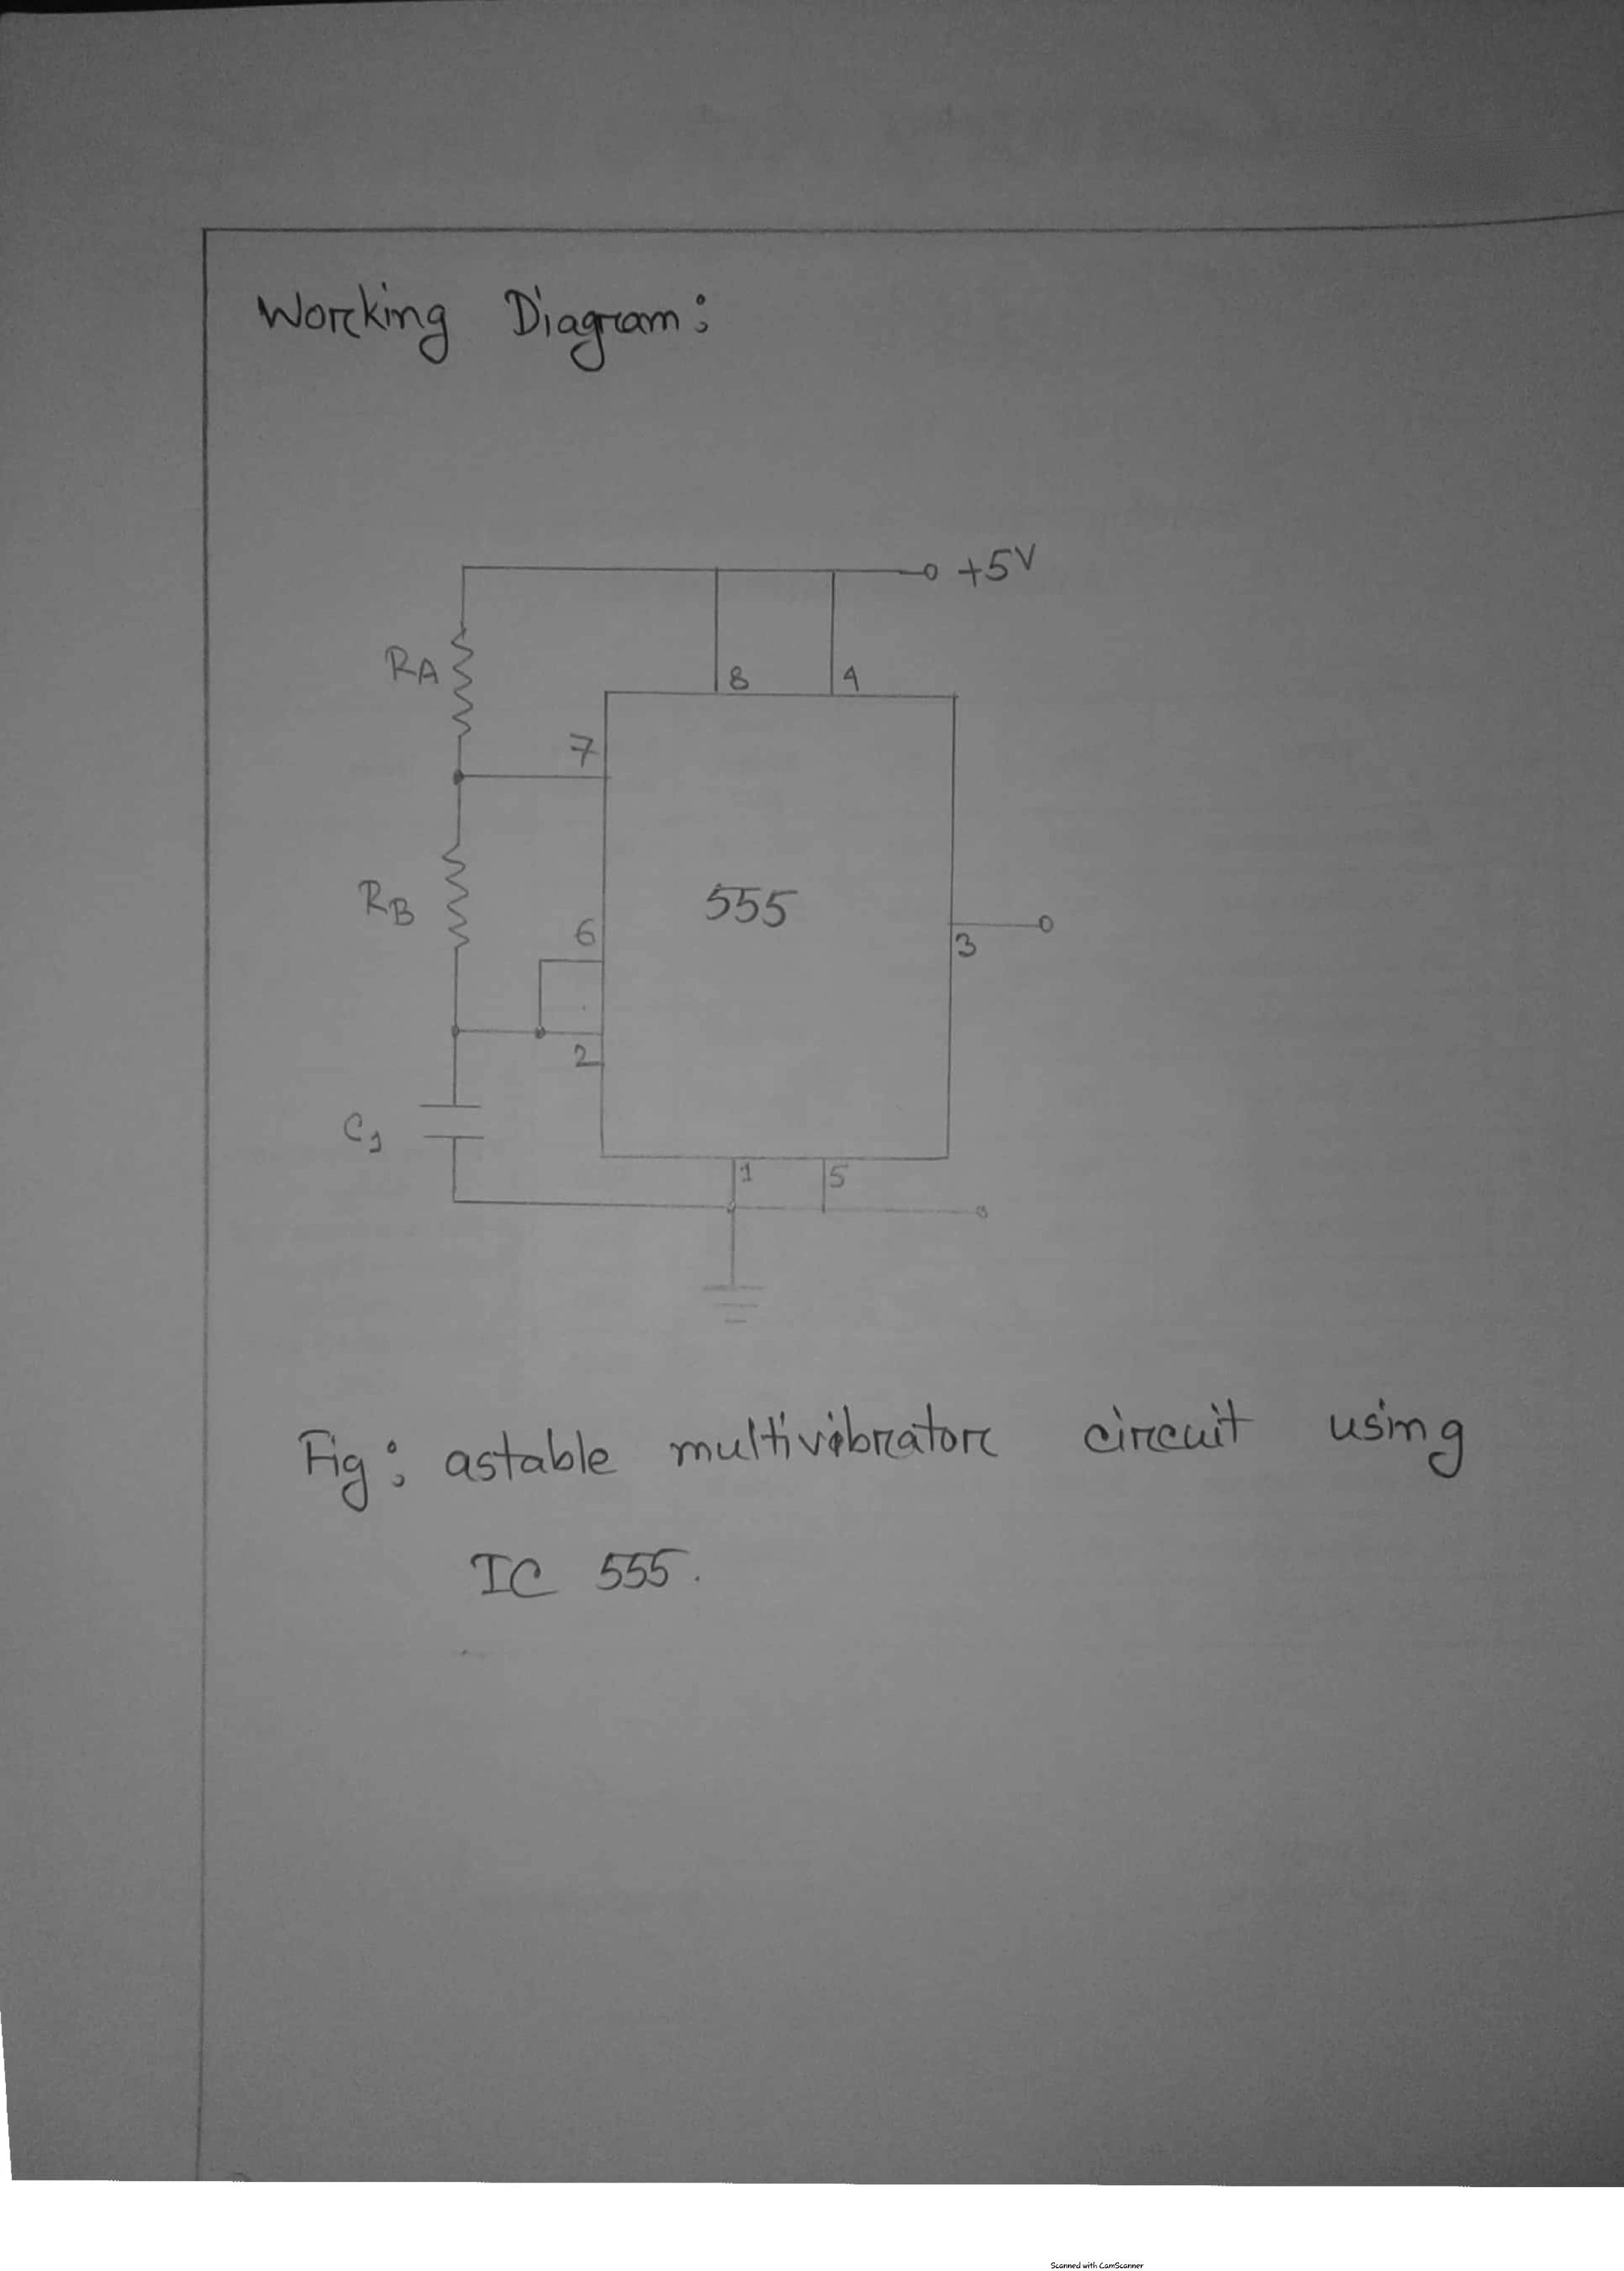 Working Diagram:
+5V
RA
8
4
7
RB
555
6
3
2
C1
1
5
Fig: astable multivibrator circuit using
IC 555.
Scanned with CamScanner